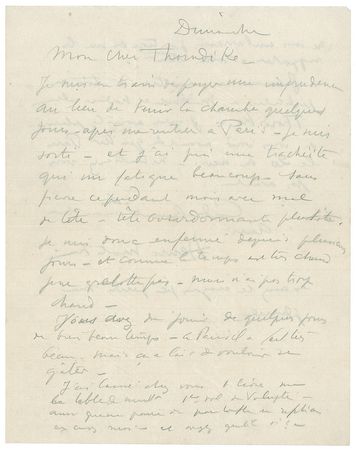 Dimanche
Mon cher Thorndike
Je suis en train de payer une imprudence
au lieu de tenir la chambre quelques
jours après ma rentrée à Paris - je suis
sorti - et j'ai pris une trachéite
qui me fatigue beaucoup - sans
fièvre cependant mais avec mal
de tête - tête
Je suis donc enfermé depuis plusieurs
jours - et comme le temps est très chaud
je ne grelotte pas - mais n'ai pas trop
chaud -
Vous avez du jouir de quelques jours
de très beau temps - à Paris il a été très
beau mais ça a l'air de vouloir se
gâter -
J'ai laissé chez vous 1 livre sur
la table de nuit 1er vol de Volupté -